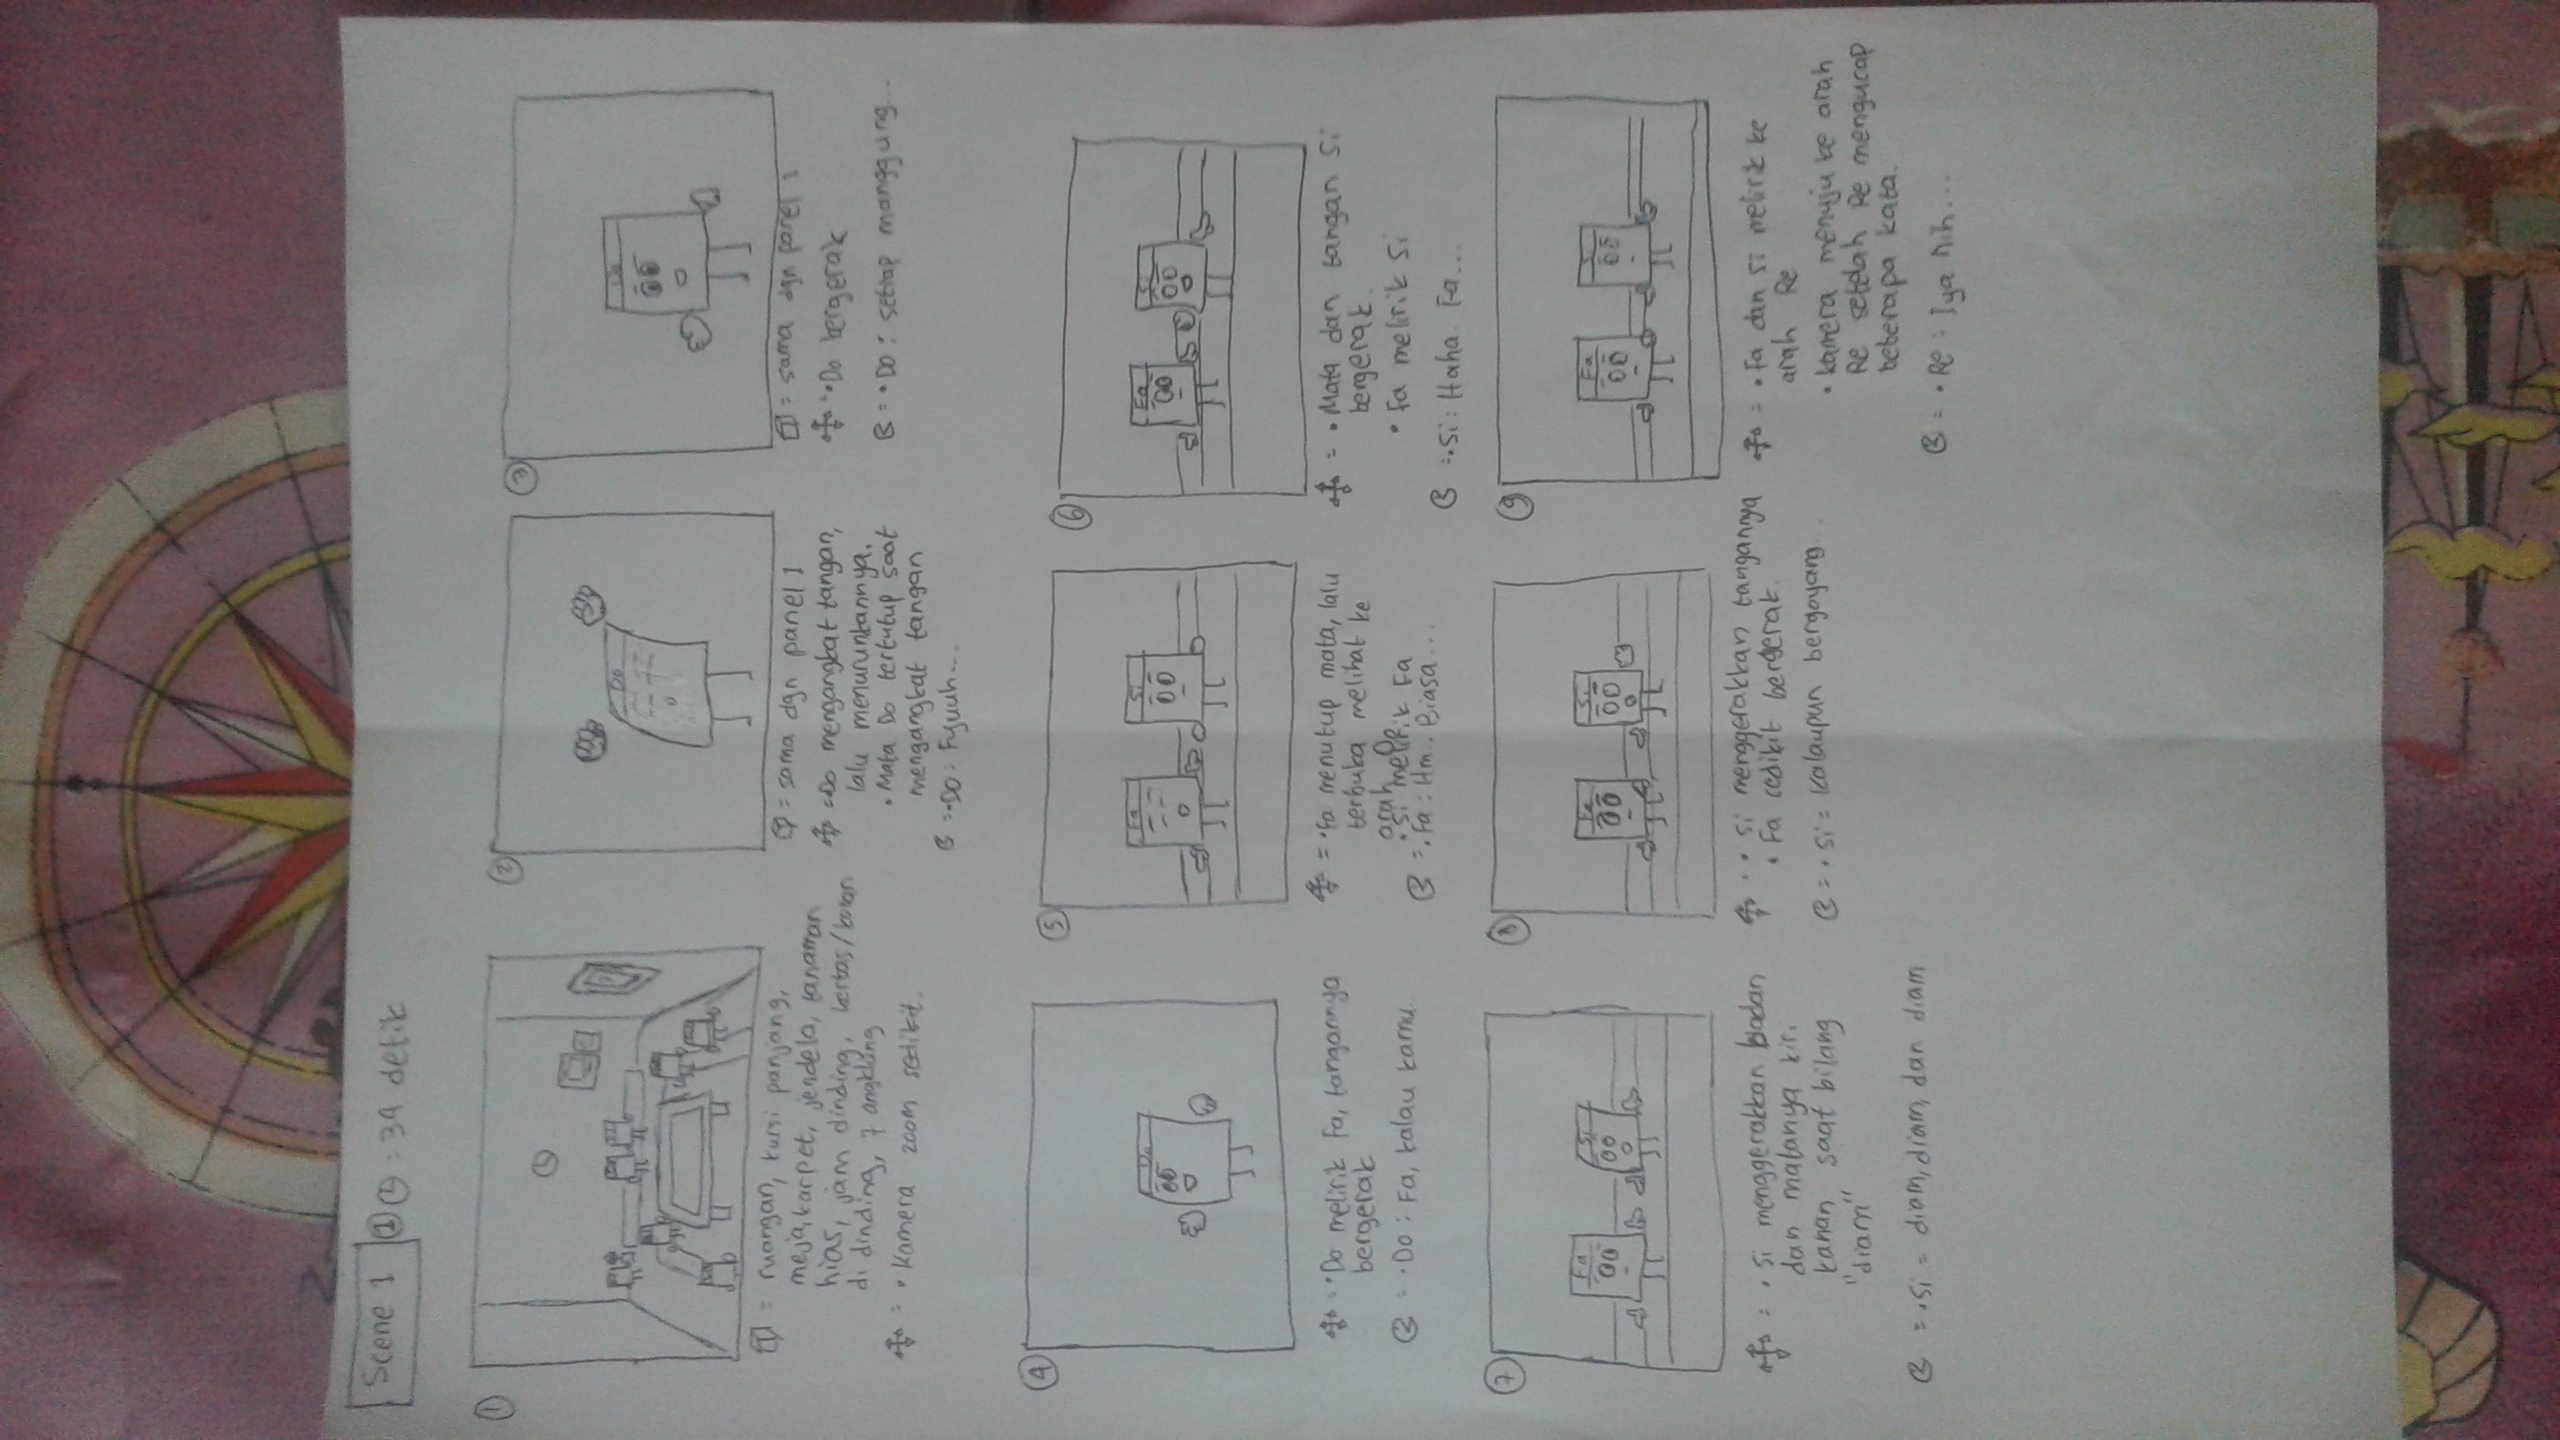 Scene 1
① = 34 detik
①
= ruangan, kursi panjang,
meja, karpet, jendela, tanaman
hias, jam dinding, kertas/koran
di dinding, 7 angklung
= • Kamera zoom sedikit.
②
Do
= sama dgn panel 1
= Do mengangkat tangan,
lalu menurunkannya.
• Mata Do tertutup saat
mengangkat tangan
= • Do : Fyuuh...
③
Do
= sama dgn panel 1
= • Do bergerak
= • Do : setiap manggung...
④
Do
= • Do melirik Fa, tangannya
bergerak
= • Do : Fa, kalau kamu..
⑤
Fa
Si
= • Fa menutup mata, lalu
terbuka melihat ke
arah Do
• Si melirik Fa
= • Fa : Hm.. Biasa...
⑥
Fa
Si
= • Mata dan tangan Si
bergerak.
• Fa melirik Si
= • Si : Haha. Fa...
⑦
Fa
Si
= • Si menggerakkan badan
dan matanya kiri
kanan saat bilang
"diam"
= • Si = diam, diam, dan diam
⑧
Fa
Si
• Si menggerakkan tangannya
• Fa sedikit bergerak.
= • Si = Kalaupun bergoyang...
⑨
Fa
Si
= • Fa dan Si melirik ke
arah Re
• kamera menuju ke arah
Re setelah Re mengucap
beberapa kata.
= • Re : Iya nih...